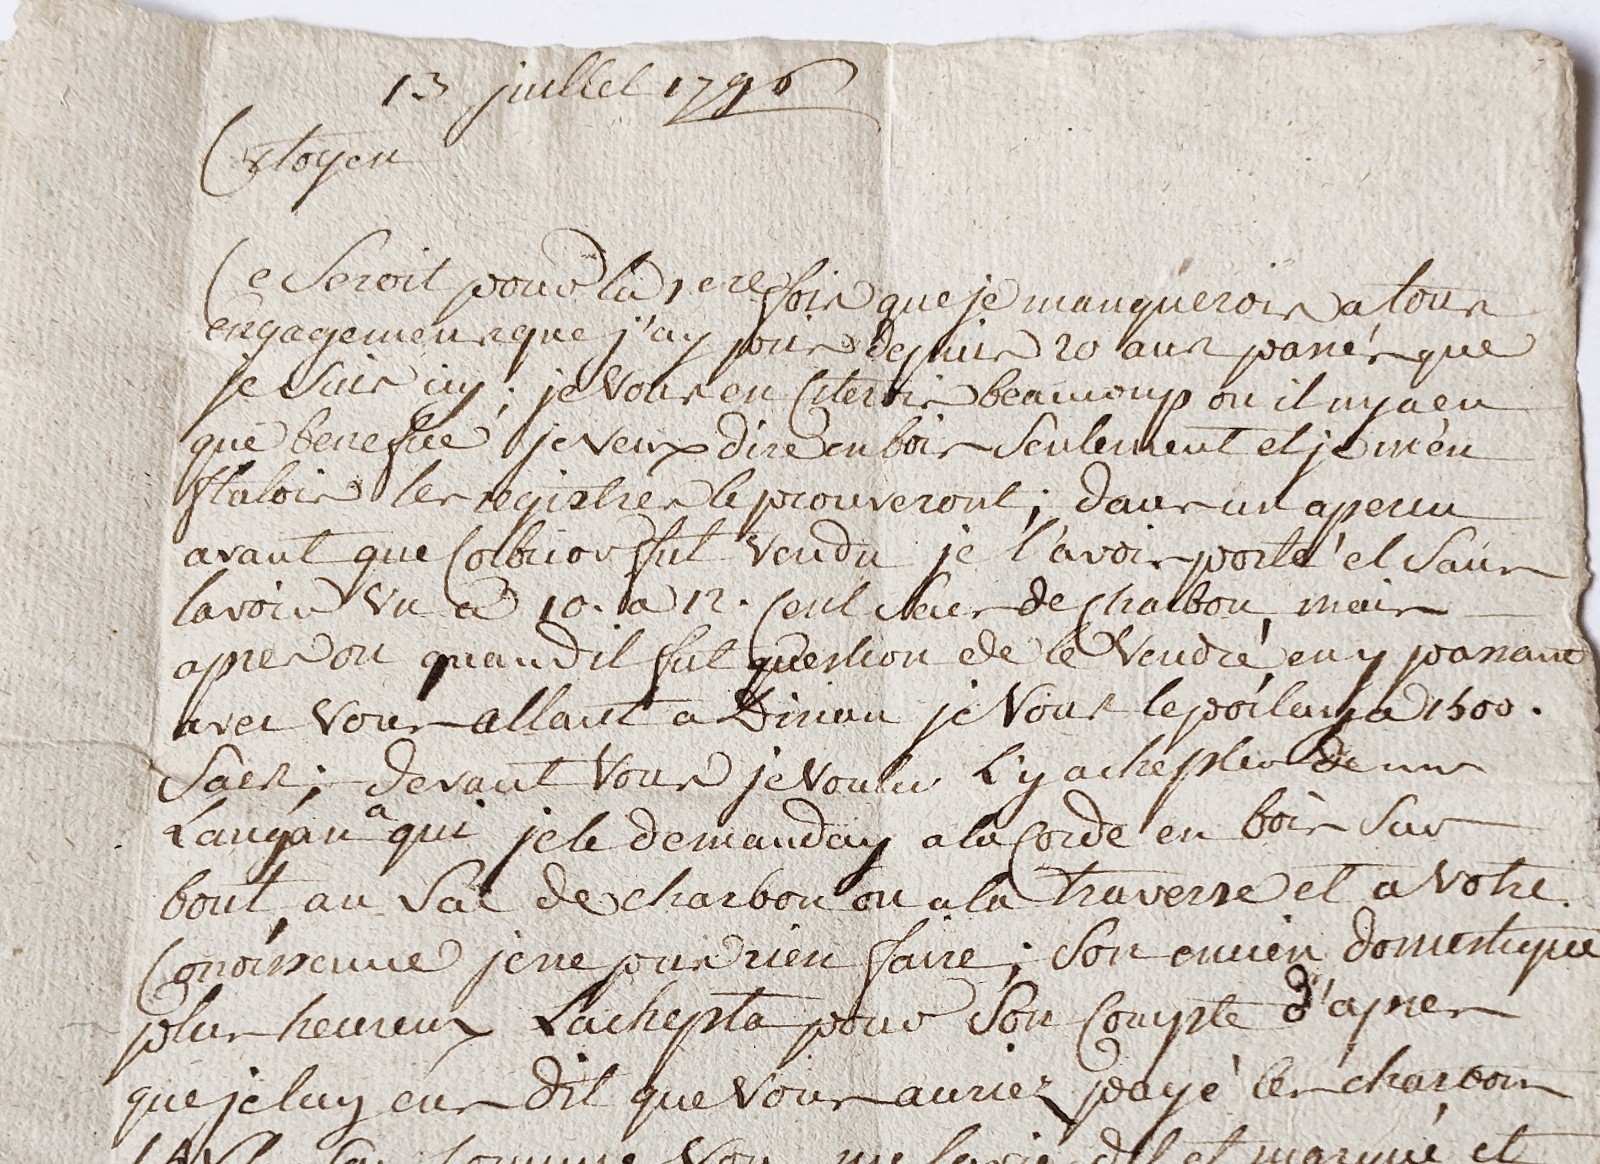 13 juillet 1796
Citoyen
Ce Seroit pour la 1ere fois que je manquerois a tous
engagemens que j'ay pris depuis 20 ans passés que
je Suis icy; je Vous en Citerois beaucoup ou il ny a eu
que benefice, je veux dire en bois Seulement et je m'en
flatois les registres le prouveront; dans un apercu
avant que fut Vendu je l'avois porté et Sans
lavoir Vu a 10. a 12. Cent Sacs de Charbon, mais
apres ou quand il fut question de le Vendre, en y passant
avec Vous allant a Dinan je Vous le a 1500.
Sacs; devant Vous je Voulu L'y achepter de mr
Langan a qui je le demanday a la Corde en bois Sur
bout, au Sac de charbon ou a la traverse et a Votre
Conoissence je ne pus rien faire; Son encien domestique
plus heureux Lachepta pour Son Compte d'apres
que je luy eus dit que Vous auriez payé les charbons